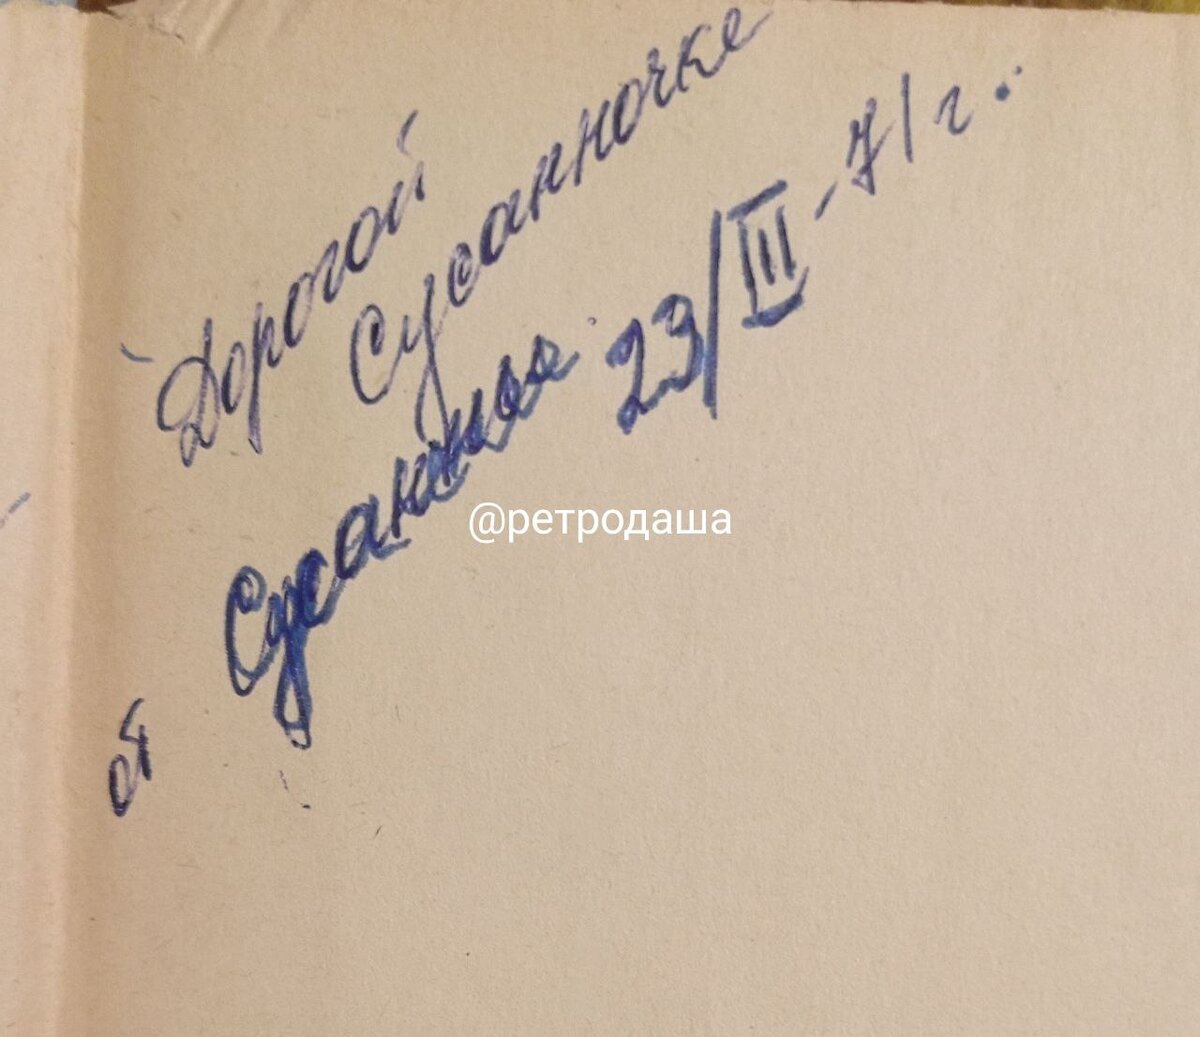 Дорогой
Сусанночке
от Сусанны 23/III-71г.
@ретродаша